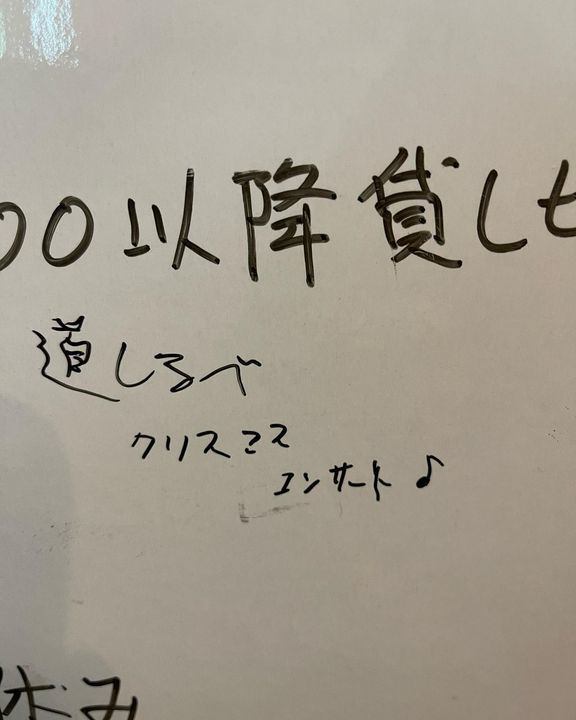 00以降貸し
道しるべ
クリスマス
コンサート♪
休み